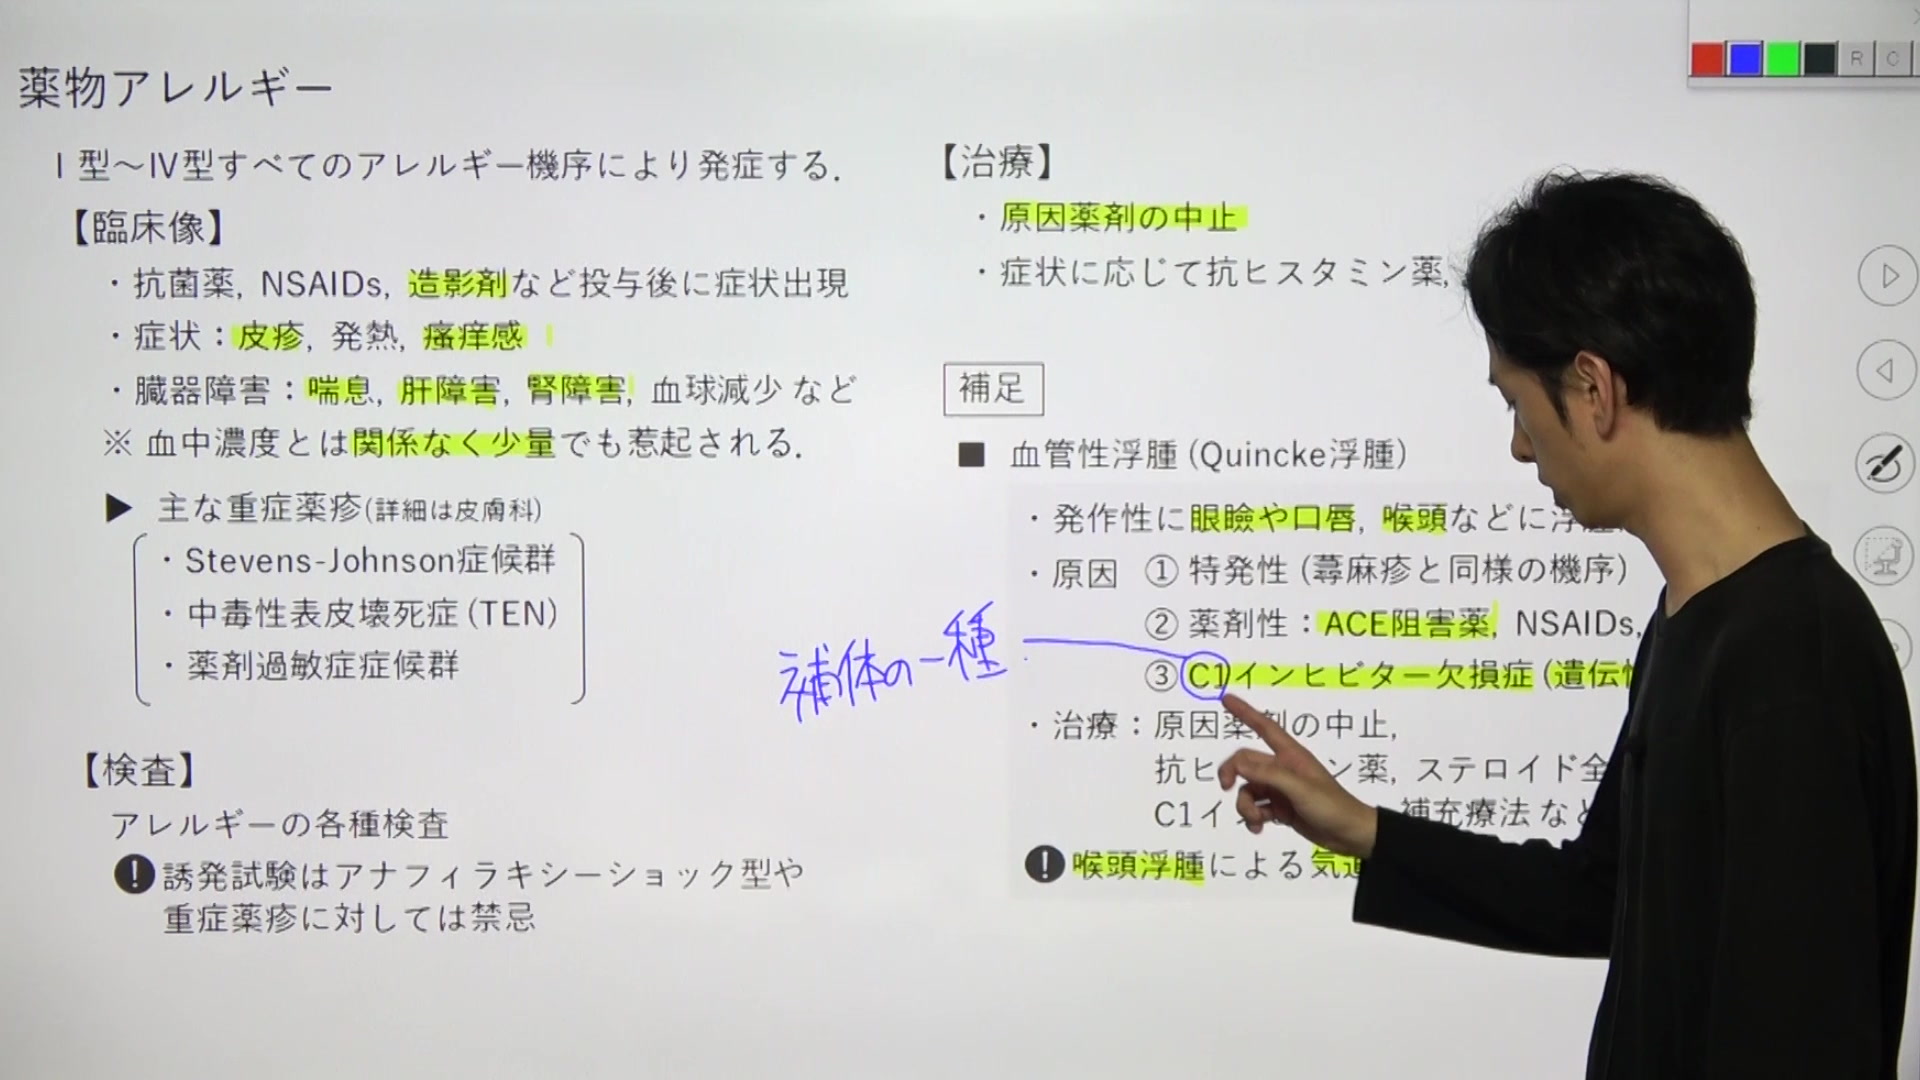 薬物アレルギー
Ⅰ型～Ⅳ型すべてのアレルギー機序により発症する.
【臨床像】
・抗菌薬, NSAIDs, 造影剤など投与後に症状出現
・症状：皮疹, 発熱, 瘙痒感
・臓器障害：喘息, 肝障害, 腎障害, 血球減少 など
※ 血中濃度とは関係なく少量でも惹起される.
▶ 主な重症薬疹(詳細は皮膚科)
・Stevens-Johnson症候群
・中毒性表皮壊死症(TEN)
・薬剤過敏症症候群
【検査】
アレルギーの各種検査
! 誘発試験はアナフィラキシーショック型や
重症薬疹に対しては禁忌
【治療】
・原因薬剤の中止
・症状に応じて抗ヒスタミン薬,
補足
■ 血管性浮腫(Quincke浮腫)
・発作性に眼瞼や口唇, 喉頭などに浮腫
・原因 ① 特発性(蕁麻疹と同様の機序)
② 薬剤性：ACE阻害薬, NSAIDs,
補体の一種
③ C1インヒビター欠損症(遺伝
・治療：原因薬剤の中止,
抗ヒ ン薬, ステロイド全
C1イ 補充療法 など
! 喉頭浮腫による気道
R C